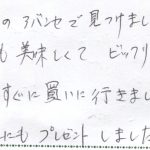 の アバンセで見つけまし
も 美味しくて ビックリ
すぐに買いに行きまし
にも プレゼントしました